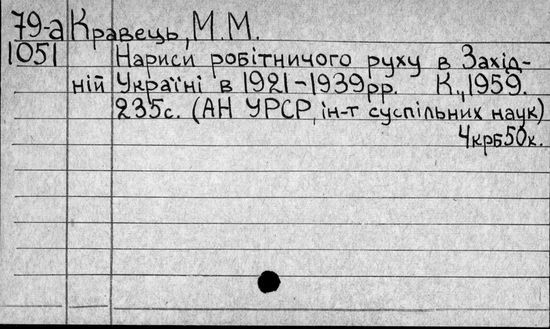 79-а Кравець, М.М.
1051 Нариси робітничого руху в Захід-
ній Україні в 1921-1939рр. К., 1959.
235с. (АН УРСР, ін-т суспільних наук)
4крб50к.